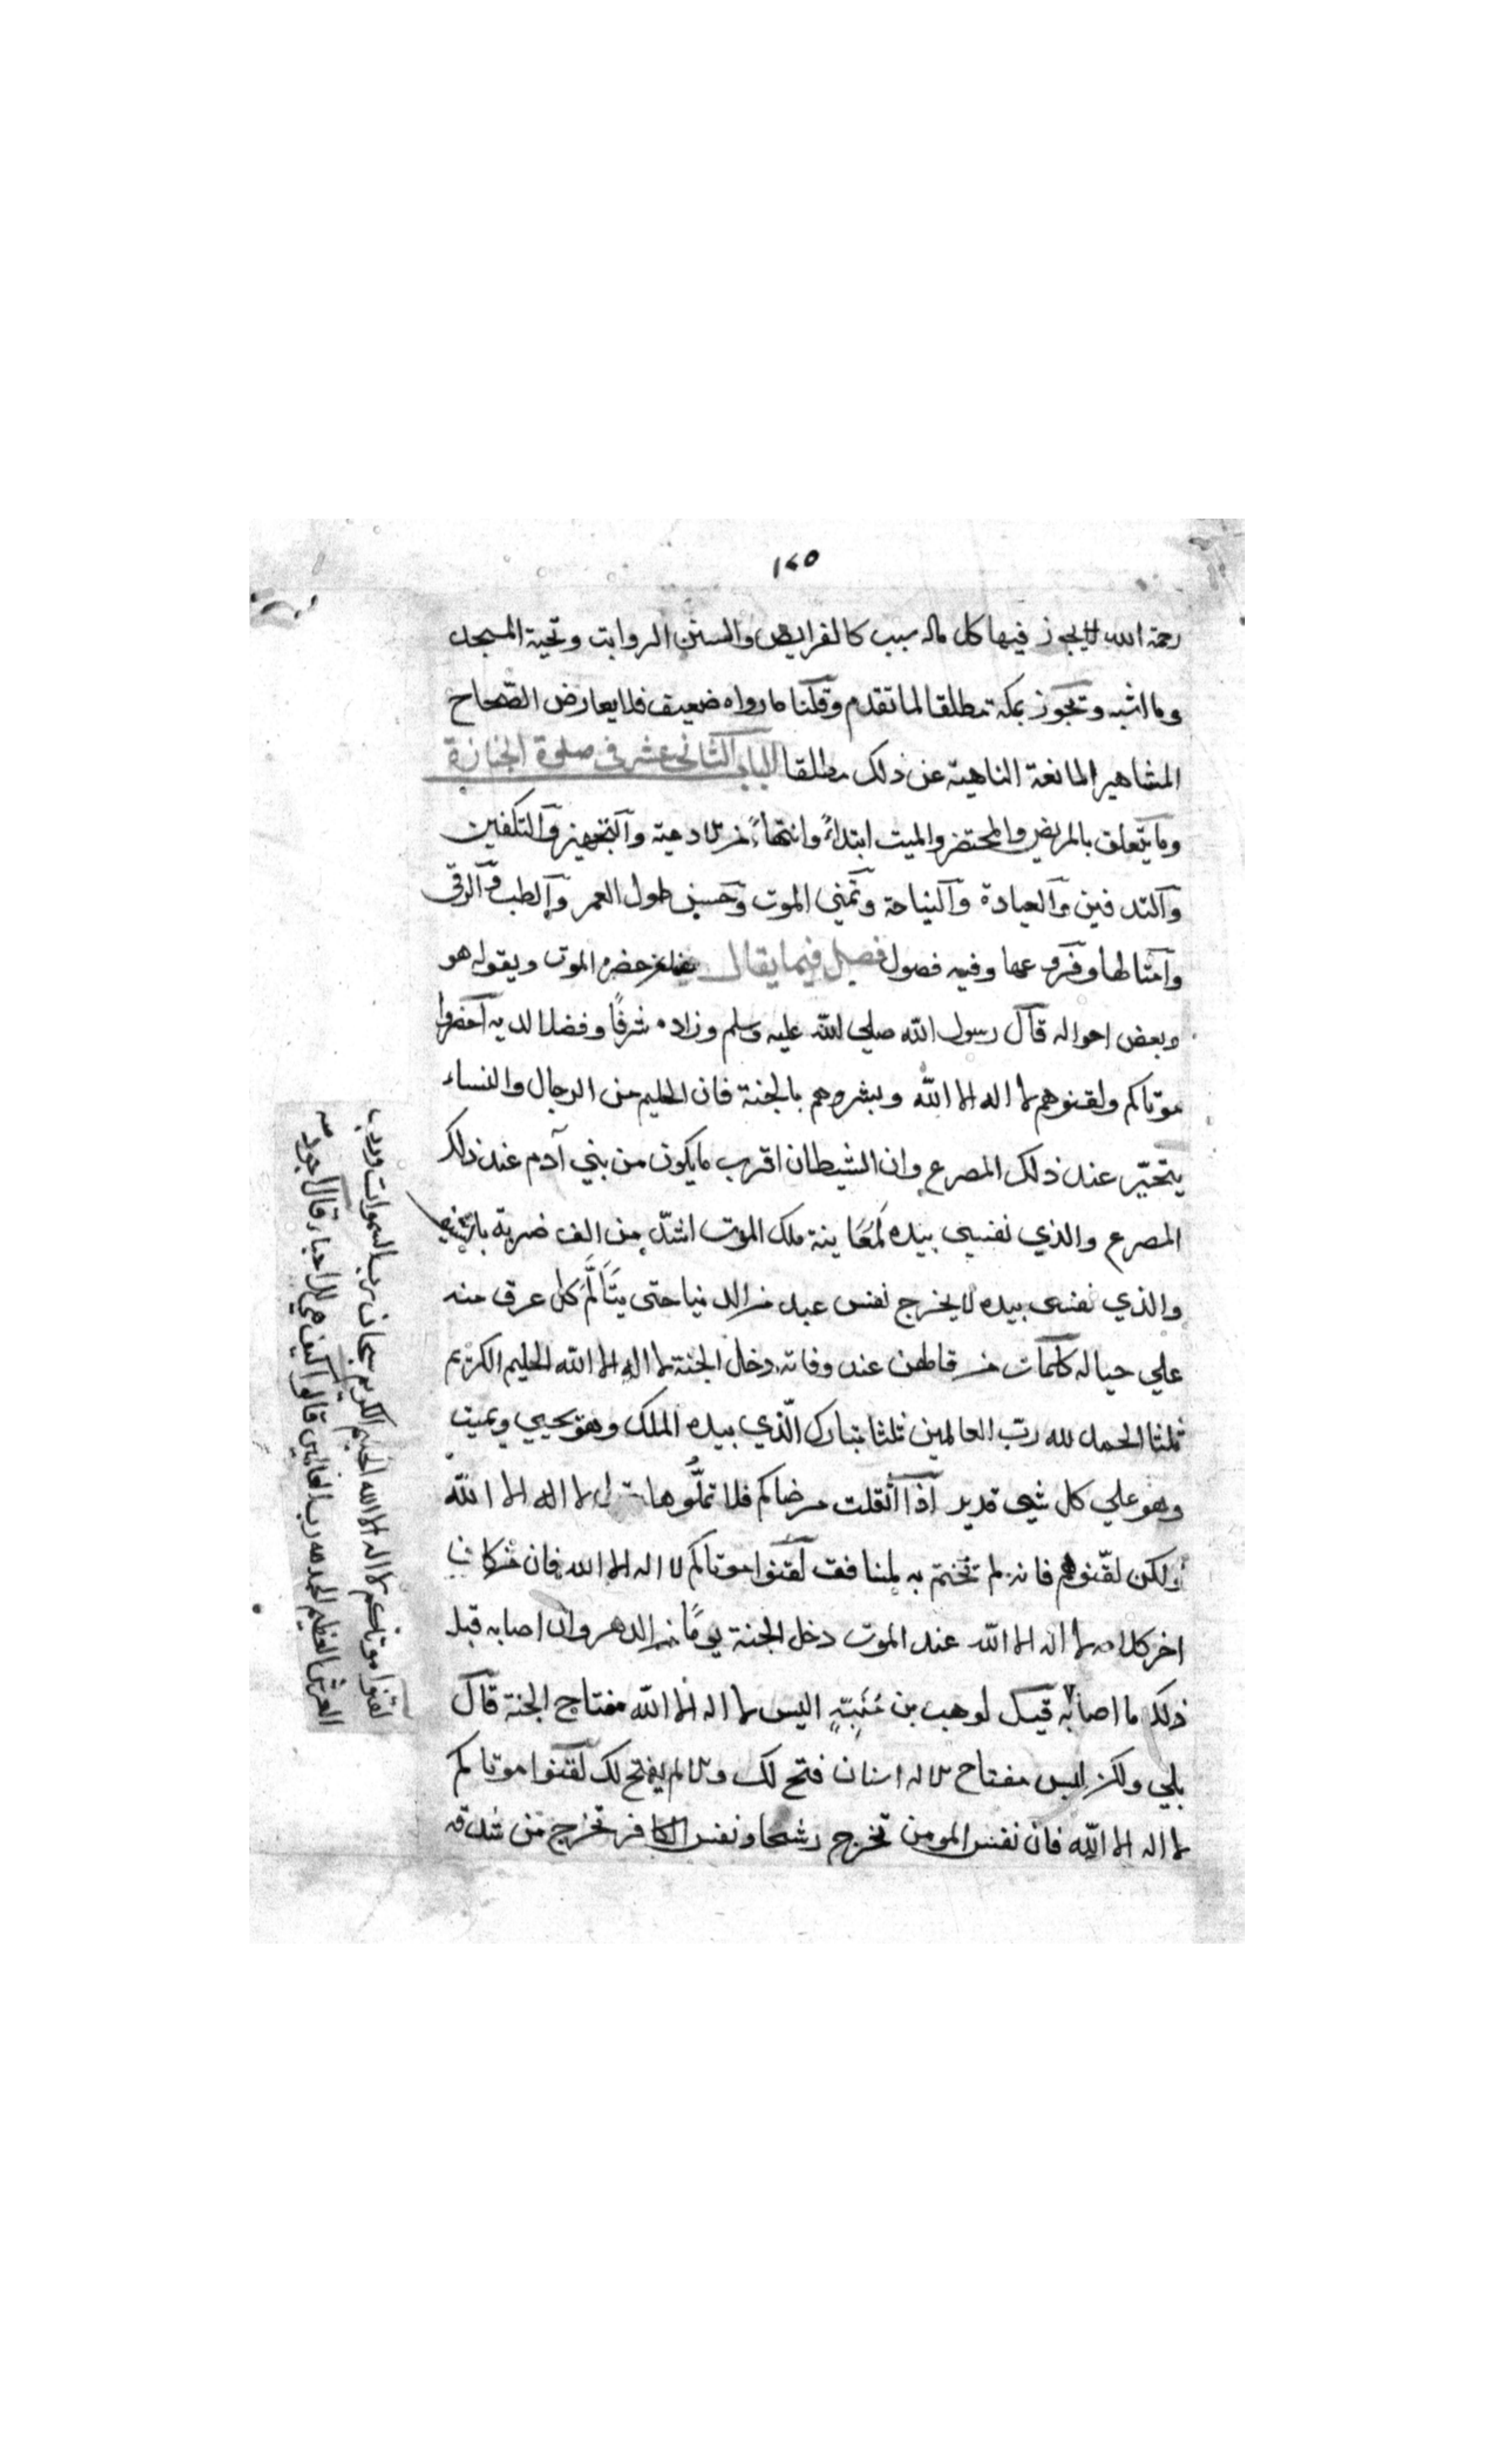 ١٤٥
رحمة الله لا يجوز فيها كل ماله سبب كالفرايض والسنن الرواتب وتحية المسجد
وما اشبه وتجوز بمكة مطلقا لما تقدم وقلنا ما رواه ضعيف فلا يعارض الصحاح
المشاهير المانعة الناهية عن ذلك مطلقا الباب الثاني عشر في صلوة الجنازة
وما يتعلق بالمريض والمحتضر والميت ابتداءً وانتهاءً من الادعية والتجهيز والتكفين
والتدفين والعيادة والنياحة وتمني الموت وحسن طول العمر والطب والرقى
وفروعها وفيه فصول فصل فيما يقال حضره الموت ويقوله هو
وبعض احواله قال رسول الله صلي الله عليه وسلم وزاده شرفًا وفضلا لديه احضروا
موتاكم ولقنوهم لا اله الا الله وبشروهم بالجنة فان الحليم من الرجال والنساء
يتحيّر عند ذلك المصرع وان الشيطان اقرب مايكون من بني آدم عند ذلك
المصرع والذي نفسي بيده لَمُعَاينة ملك الموت اشدّ من الف ضربة بالسيف
والذي نفسي بيده لا يخرج نفس عبد من الدنيا حتى يتَأَلَّمَ كل عرق منه
علي حياله كلمات من قالهن عند وفاته دخل الجنة لا اله الا الله الحليم الكريم
ثلثا الحمد لله ربّ العالمين ثلثا تبارك الّذي بيده الملك وهو يحيي ويميت
وهو علي كل شي قدير اذا اثقلت مرضاكم فلا تملّوها لا اله الا الله
ولكن لقّنوهم فانه لم تختم به لمنافق لقنوا موتاكم لا اله الا الله فان من كان
اخر كلامه لا اله الا الله عند الموت دخل الجنة يومًا من الدهر وان اصابه قبل
ذلك ما اصابه قيل لوهب بن مُنَبِّهٍ اليس لا اله الا الله مفتاح الجنة قال
بلي ولكن ليس مفتاح الا له اسنان فتح لك والا لم يفتح لك لقنوا موتاكم
لا اله الا الله فان نفس المومن تخرج رشحا ونفس الكافر تخرج من شدقه
لقنوا موتاكم لا اله الا الله الحليم الكريم سبحان رب السموات ورب
العرش العظيم الحمد لله رب العالمين قالوا كيف هي للاحياء قال اجود